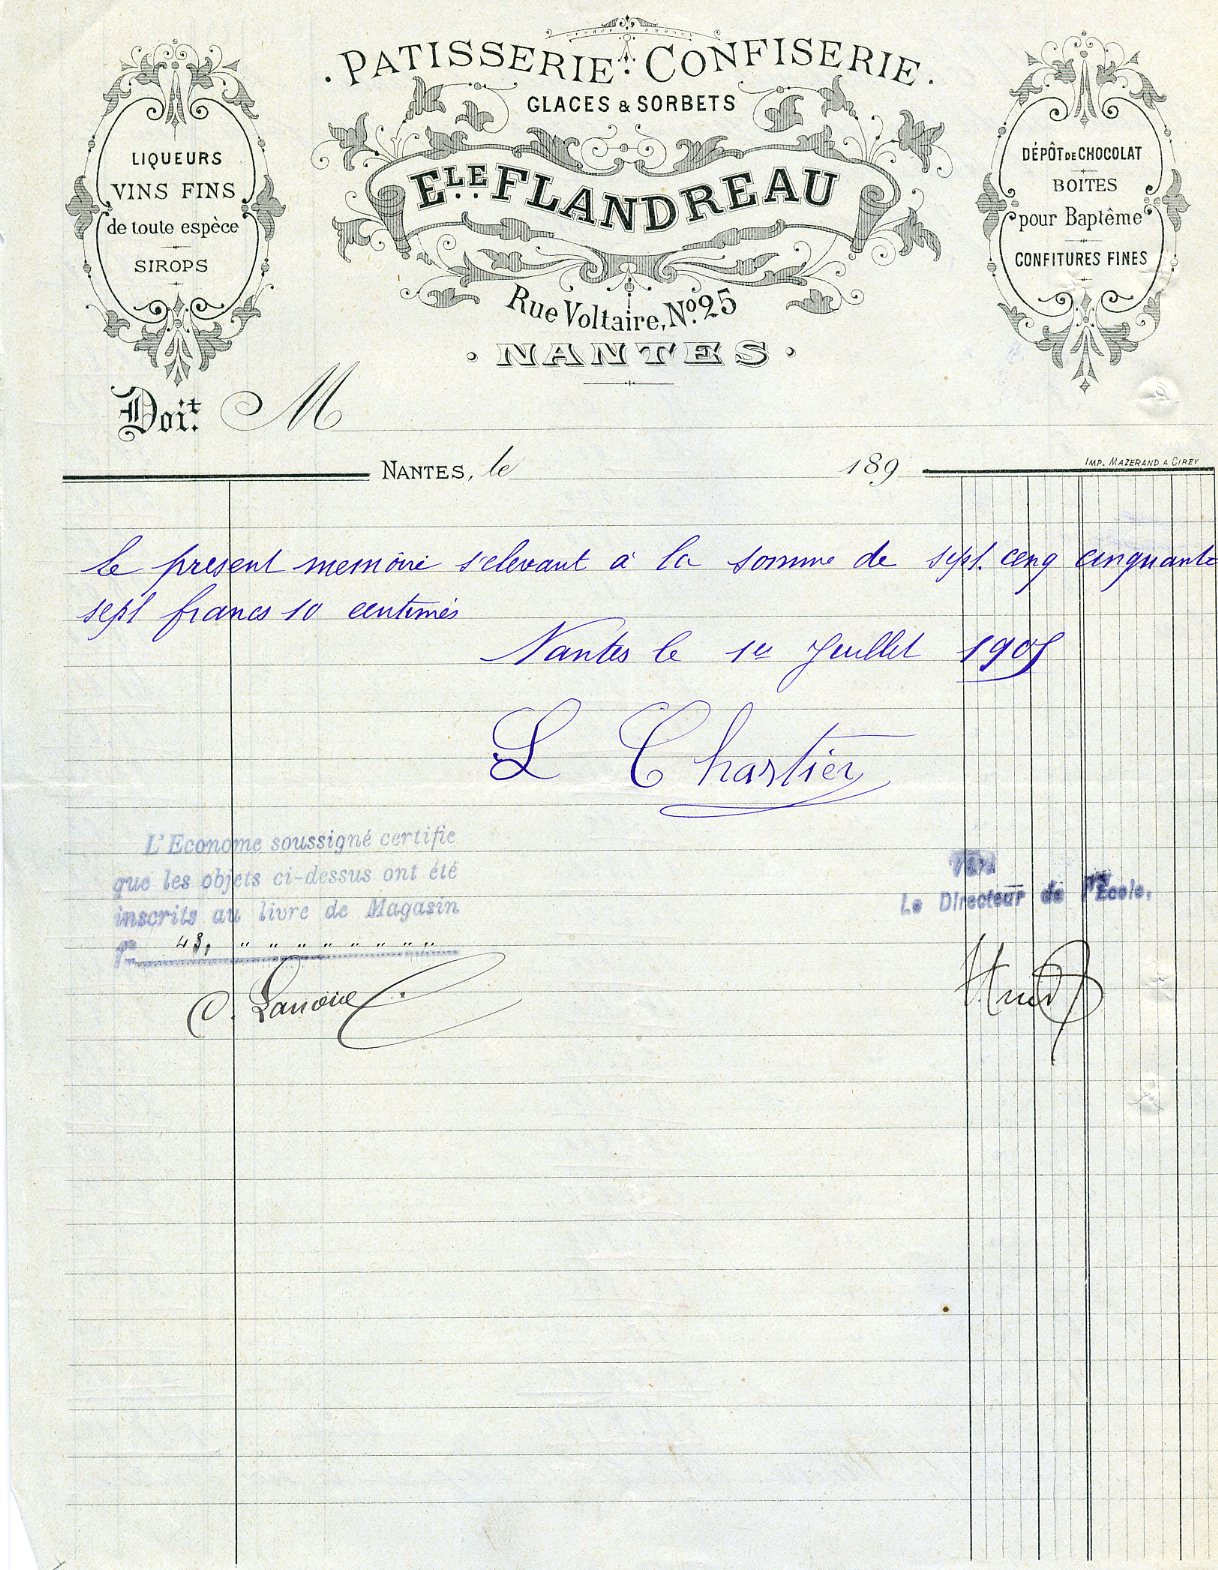 PATISSERIE. CONFISERIE.
GLACES & SORBETS
ELE FLANDREAU
Rue Voltaire, No. 25
NANTES
LIQUEURS
VINS FINS
de toute espèce
SIROPS
DÉPÔT DE CHOCOLAT
BOITES
pour Baptême
CONFITURES FINES
Doit. M
NANTES, le 189
IMP. MAZERAND A CIREY
Le present memoire s'elevant à la somme de sept. cenq cinquante
sept francs 10 centimes
Nantes le 1er Juillet 1905
L Chartier
L'Econome soussigné certifie
que les objets ci-dessus ont été
inscrits au livre de Magasin
fo 43, " " " " " " " "
VU
Le Directeur de l'Ecole,